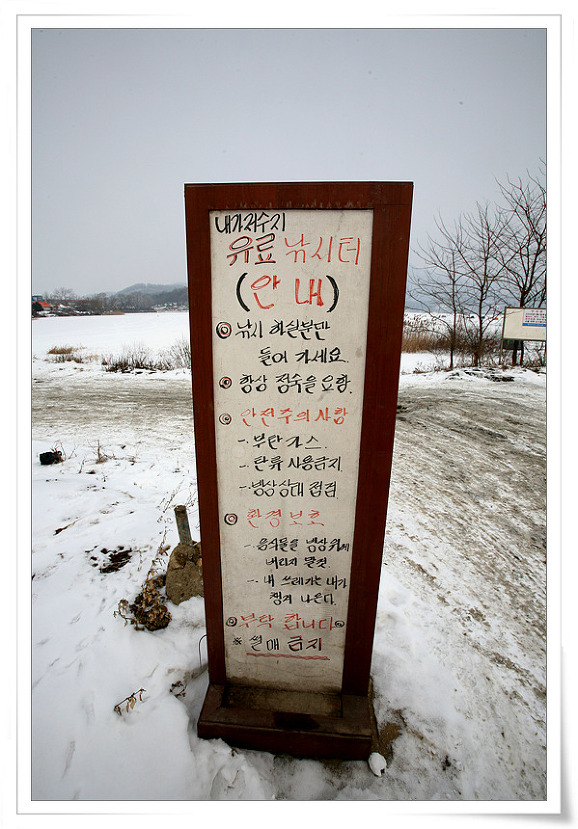 내가저수지
유료 낚시터
(안 내)
낚시 하실분만
들어 가세요.
항상 정숙을 요함.
안전주의사항
- 부탄가스.
- 탄류 사용금지
- 빙상상태 점검
환경보호
- 음식물을 빙상위에
버리지 말것
- 내 쓰레기는 내가
챙겨 나온다.
부탁 합니다
※ 썰매 금지